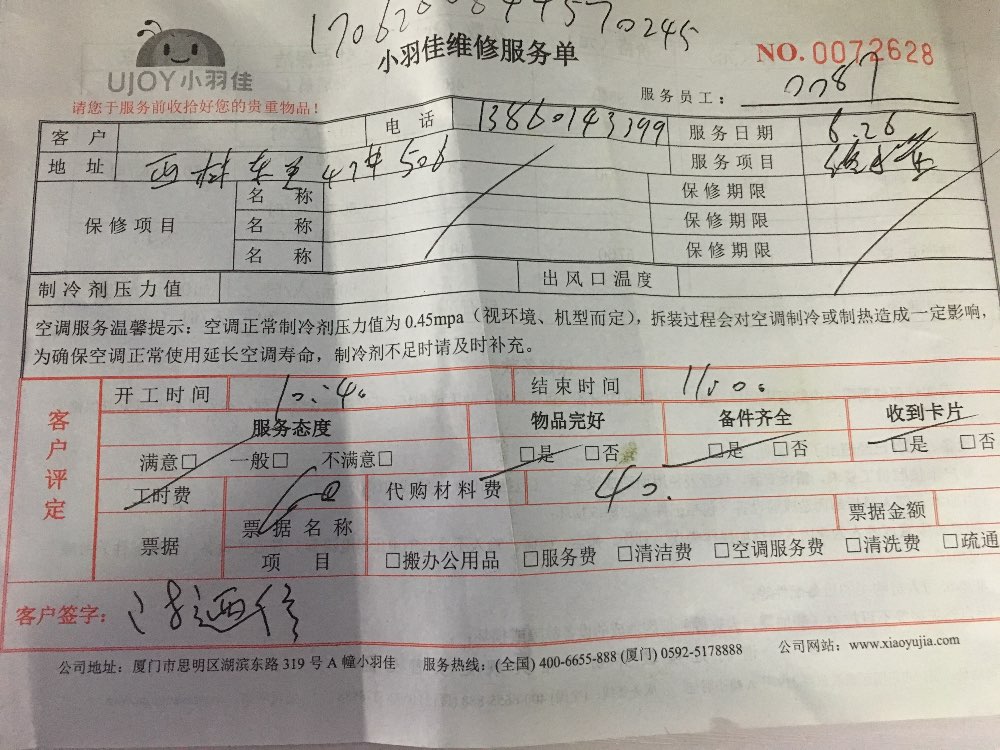 小羽佳维修服务单
UJOY小羽佳
NO.0072628
请您于服务前收拾好您的贵重物品！
服务员工：
客户 电话 13860143399 服务日期 6.26
地址 西村东里47# 506 服务项目
保修项目 名称 保修期限
名称 保修期限
名称 保修期限
制冷剂压力值 出风口温度
空调服务温馨提示：空调正常制冷剂压力值为0.45mpa（视环境、机型而定），拆装过程会对空调制冷或制热造成一定影响，
为确保空调正常使用延长空调寿命，制冷剂不足时请及时补充。
客户评定
开工时间 10:40 结束时间 11:00
服务态度 物品完好 备件齐全 收到卡片
满意□ 一般□ 不满意□ □是 □否 □是 □否 □是 □否
工时费 代购材料费 40.
票据 票据名称 票据金额
项目 □搬办公用品 □服务费 □清洁费 □空调服务费 □清洗费 □疏通
客户签字：
公司地址：厦门市思明区湖滨东路 319 号 A 幢小羽佳 服务热线：(全国) 400-6655-888 (厦门) 0592-5178888 公司网站：www.xiaoyujia.com